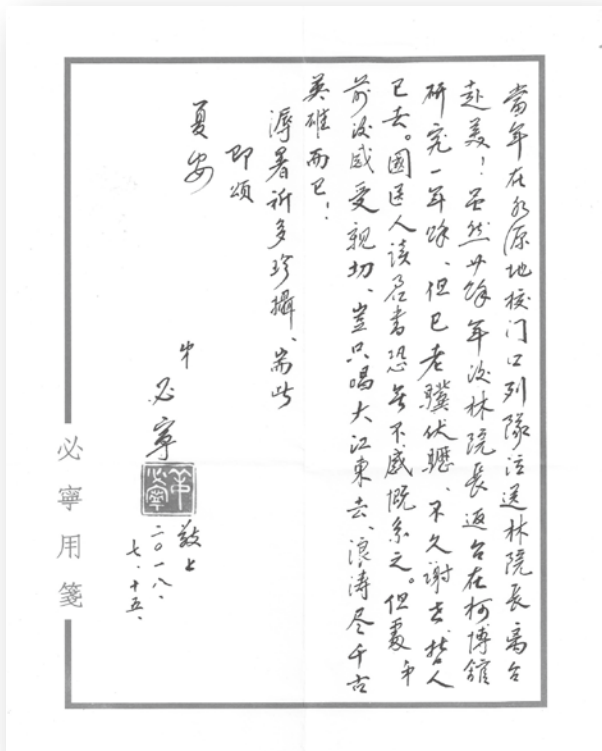 當年在水源地校门口列隊注送林院長离台
赴美！虽然廿餘年後林院長返台在柯博館
研究一年餘、但已老驥伏櫪、不久谢世哲人
已去。國医人读君書恐無不感慨系之。但裹
前後感受親切、豈只唱大江東去、浪濤尽千古
英雄而已！
溽暑祈多珍攝、耑此
即頌
夏安
弟
必寧
敬上
二〇一八、
七、十五、
必寧用箋